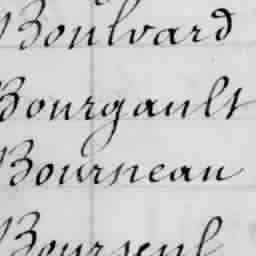 Boulvard
Bourgault
Bourneau
Bourseul